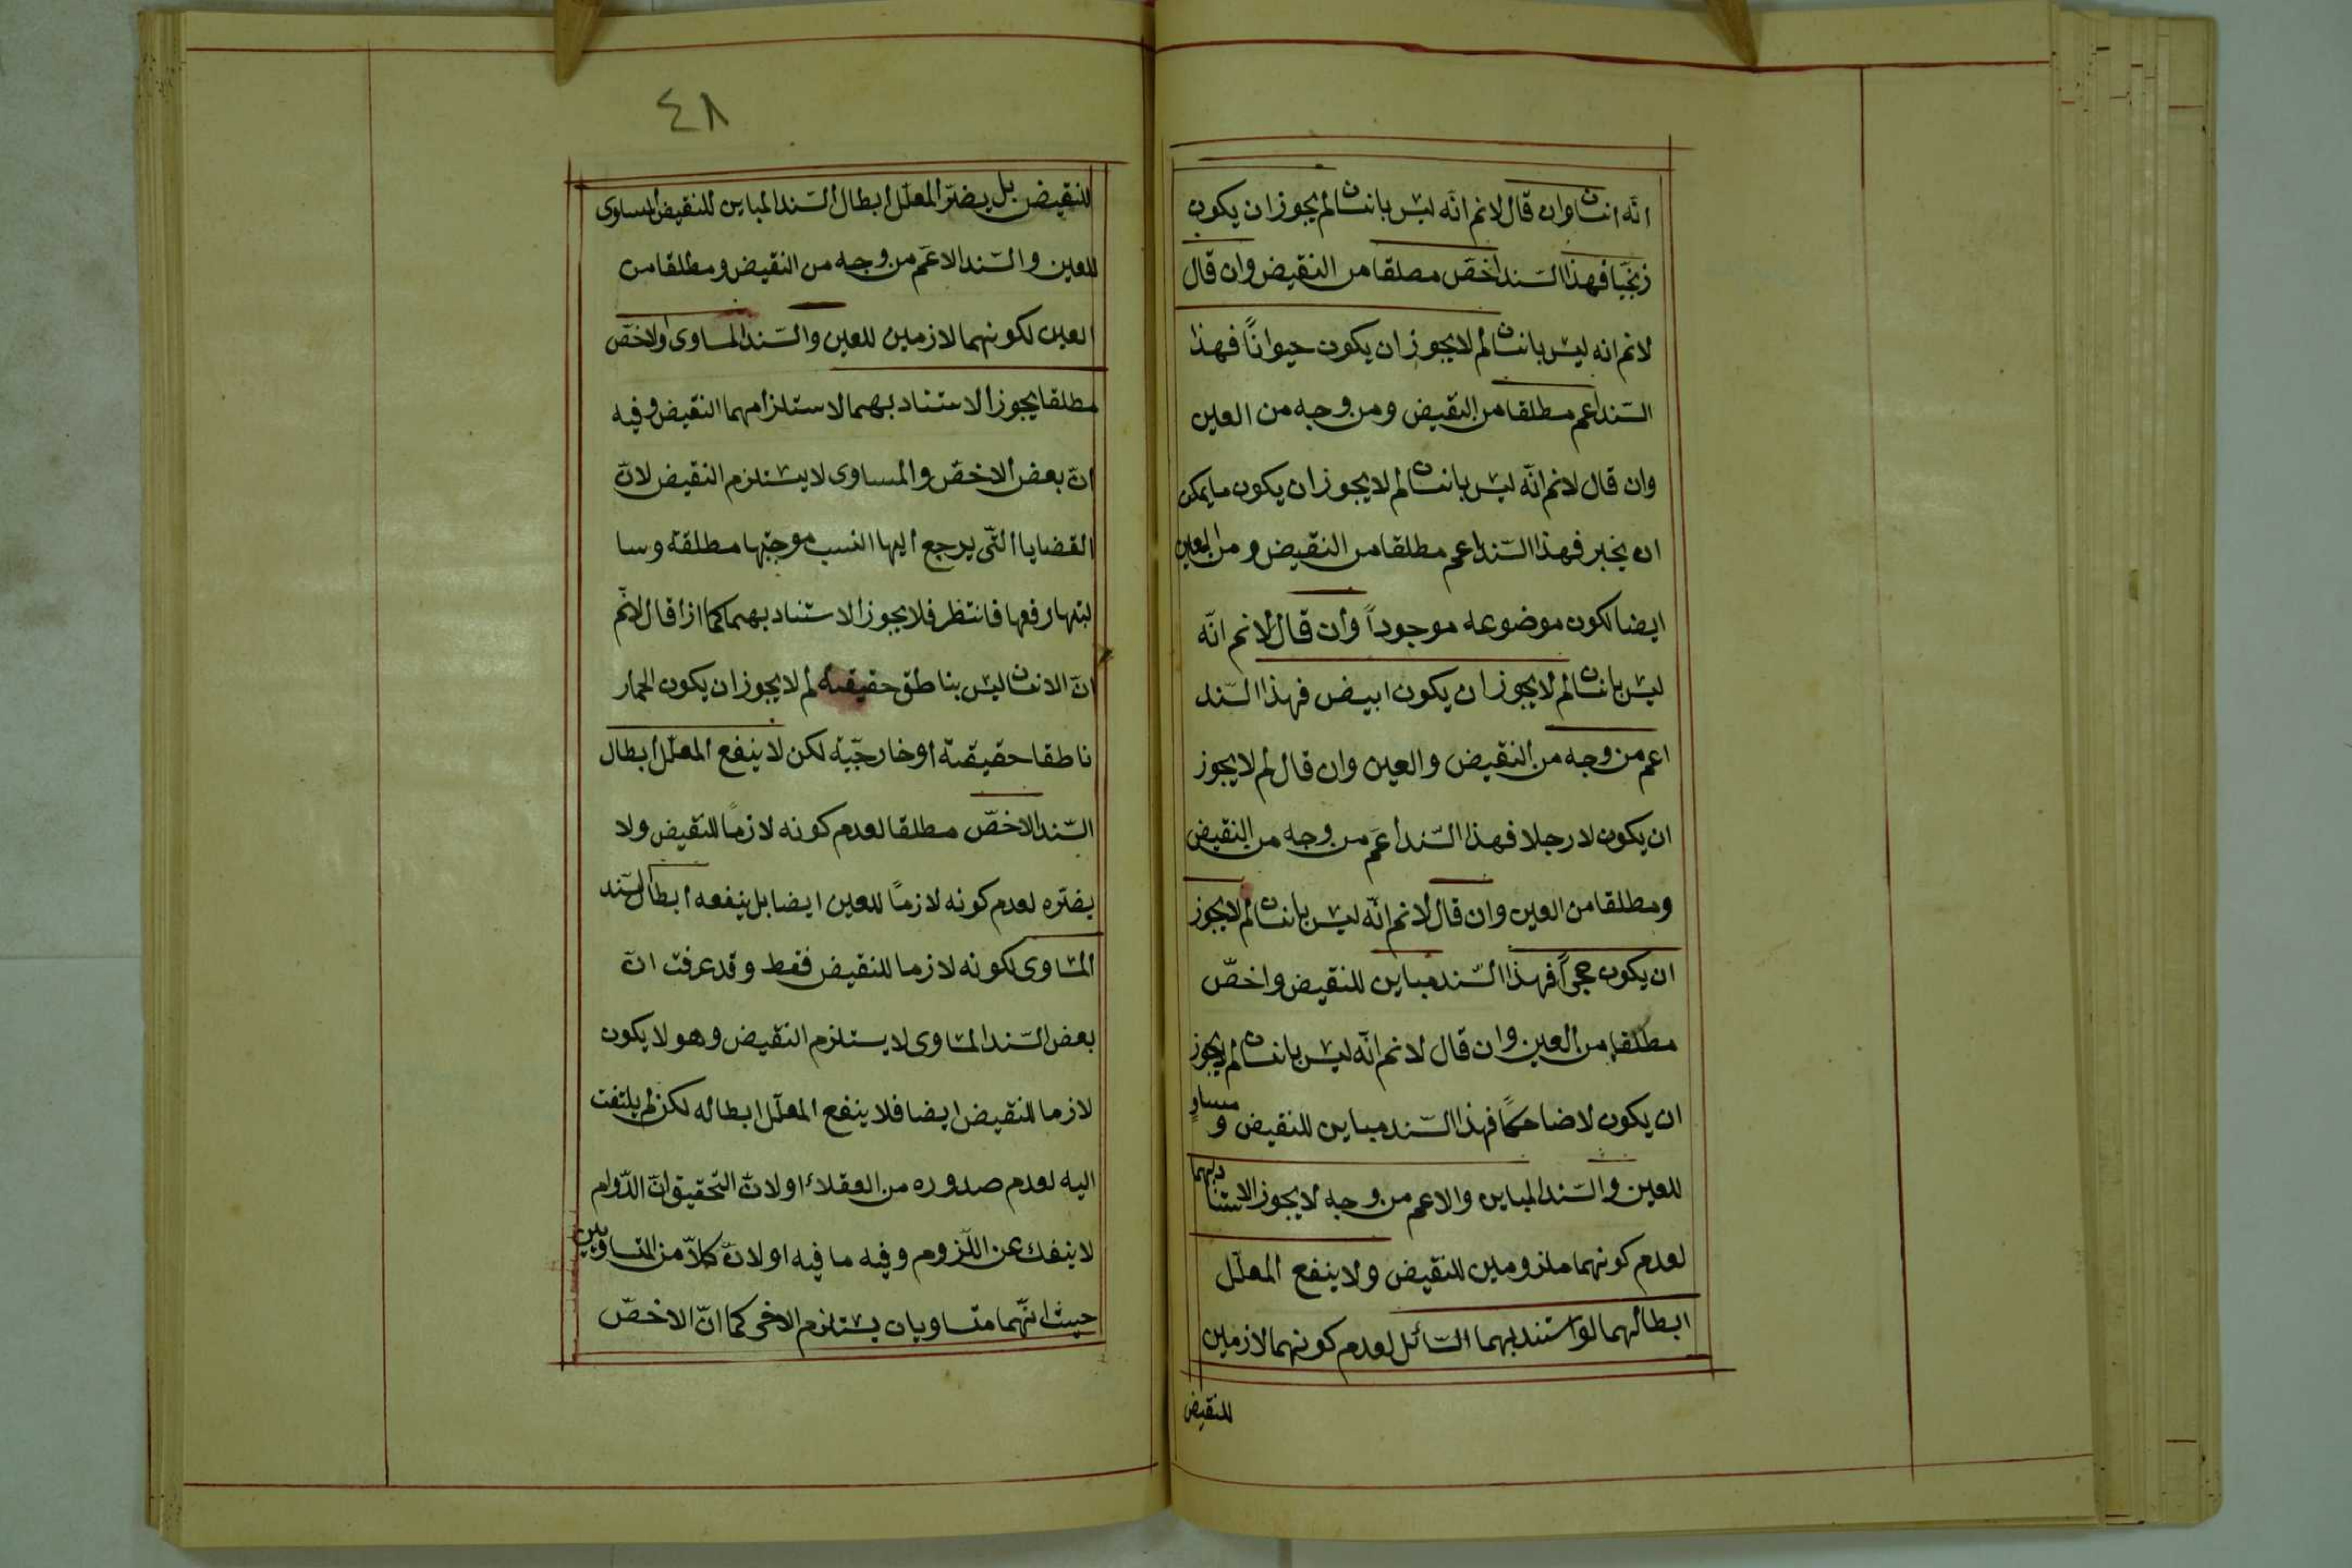 انّه انسان وان قال لانم انّه ليس بانسان لم يجوز ان يكون
زنجيّا فهذا السّند اخصّ مطلقا من النقيض وان قال
لانم انه ليس بانسان لم لا يجوز ان يكون حيواناً فهذا
السّند اعم مطلقا من النقيض ومن وجه من العين
وان قال لانم انّه ليس بانسان لم لا يجوز ان يكون ما يمكن
ان يخبر فهذا السّند اعم مطلقا من النقيض ومن العين
ايضا لكون موضوعه موجوداً وان قال لانم انّه
ليس بانسان لم لا يجوز ان يكون ابيض فهذا السّند
اعم من وجه من النقيض والعين وان قال لم لا يجوز
ان يكون لا رجلا فهذا السّند اعمّ من وجه من النقيض
ومطلقا من العين وان قال لانم انّه ليس بانسان لم لا يجوز
ان يكون حجراً فهذا السّند مباين للنقيض واخصّ
مطلقا من العين وان قال لانم انّه ليس بانسان لم لا يجوز
ان يكون لا ضاحكاً فهذا السّند مباين للنقيض ومساوٍ
للعين والسّند المباين والاعم من وجه لا يجوز الاستناد بهما
لعدم كونهما ملزومين للنقيض ولا ينفع المعلّل
ابطالهما لو استند بهما السّائل لعدم كونهما لازمين
للنقيض
٤٨
للنقيض بل يضرّ المعلّل ابطال السّند المباين للنقيض المساوى
للعين والسّند الاعمّ من وجه من النقيض ومطلقا من
العين لكونهما لازمين للعين والسّند المساوى او الاخصّ
مطلقا يجوز الاستناد بهما لاستلزامهما النقيض وفيه
انّ بعض الاخصّ والمساوى لا يستلزم النقيض لانّ
القضايا التّى يرجع اليها النسب موجبتها مطلقة وسا
لبتها رفعها فانتظر فلا يجوز الاستناد بهما كما اذا قال لانّم
انّ الانسان ليس بناطق حقيقية لم لا يجوز ان يكون الحمار
ناطقا حقيقية او خارجيّة لكن لا ينفع المعلّل ابطال
السّند الاخصّ مطلقا لعدم كونه لازماً للنقيض ولا
يضرّه لعدم كونه لازماً للعين ايضا بل ينفعه ابطال السّند
المساوى لكونه لازما للنقيض فقط وقد عرفت انّ
بعض السّند المساوى لا يستلزم النقيض وهو لا يكون
لازما للنقيض ايضا فلا ينفع المعلّل ابطاله لكن لم يلتفت
اليه لعدم صدوره من العقلاء او لانّ التحقيق انّ الدّوام
لا ينفك عن اللّزوم وفيه ما فيه او لانّ كلاّ من المتساويين
حيث انّهما متساويان يستلزم الاخر كما انّ الاخصّ